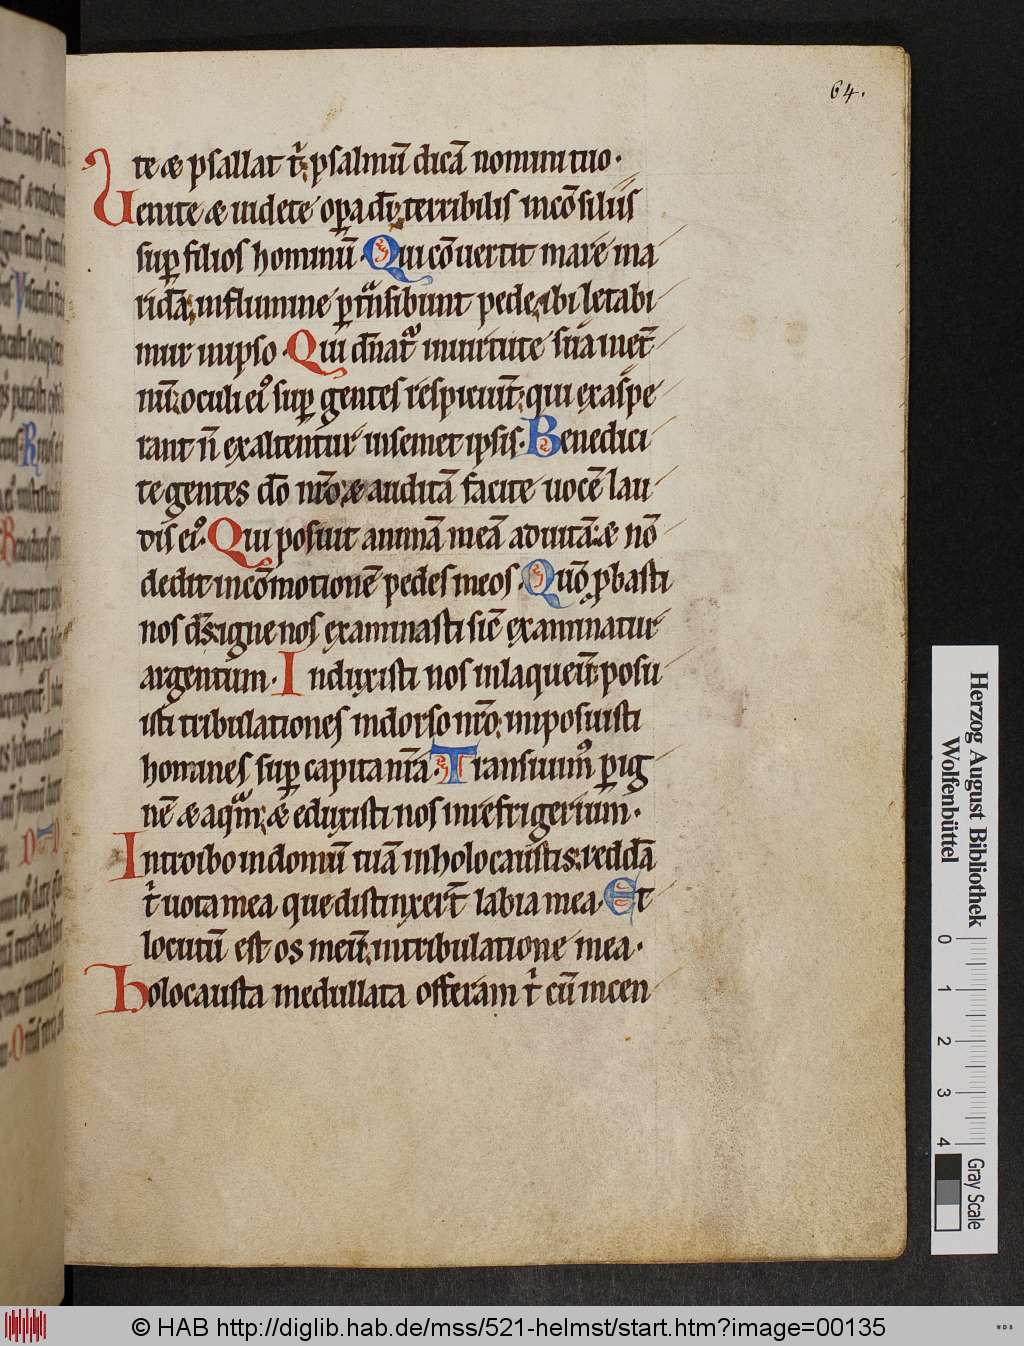 64.
te & psallat t̄. psalmū dicā nomini tuo.
Uenite & uidete opa dī. terribilis incōsiliis
sup filios hominū. Qui cōuertit mare ina
ridā. influmine ptnsibunt pede. ibi letabi
mur inipso. Qui dn̄at̉ inuirtute sua inet̄
nū. oculi ei᾽ sup gentes respiciūt. qui exaspe
rant n̄ exaltentur insemet ipsis. Benedici
te gentes dō nr̄o. & auditā facite uocē lau
dis ei᾽. Qui posuit animā meā aduitā. & nō
dedit incōmotionē pedes meos. Qūo pbasti
nos dš. igne nos examinasti sic̄ examinatur
argentum. Induxisti nos inlaqueū. posu
isti tribulationes indorso nr̄o. imposuisti
homines sup capita nr̄a. Transiuim᾽ p ig
nē & aqm̄. & eduxisti nos inrefrigerium.
Introibo indomū tuā inholocaustis. reddā
t̄ uota mea que distinxer̄t labia mea. Et
locutū est os meū. intribulatione mea.
Holocausta medullata offeram t̄ cū incen
Herzog August Bibliothek
Wolfenbüttel
0 1 2 3 4
Gray Scale
© HAB http://diglib.hab.de/mss/521-helmst/start.htm?image=00135